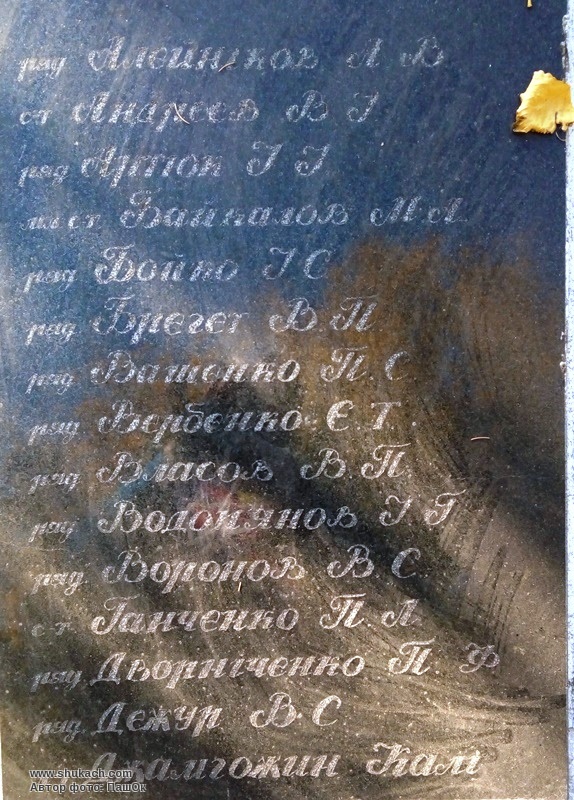 ряд Алейніков А В
ст Андрєєв В І
ряд Артюк І І
мл ст Байкалов М А
ряд Бойко І С
ряд Брегет В.П
ряд. Ващенко П.С.
ряд. Вербенко Є.Т.
ряд. Власов В.П
ряд. Водом'янов І Г
ряд. Воронов В С
ст Ганченко П.А
ряд. Дворніченко П.Ф
ряд. Дежур В.С
Джамгожин Калі
www.shukach.com
Автор фото: ПашОк